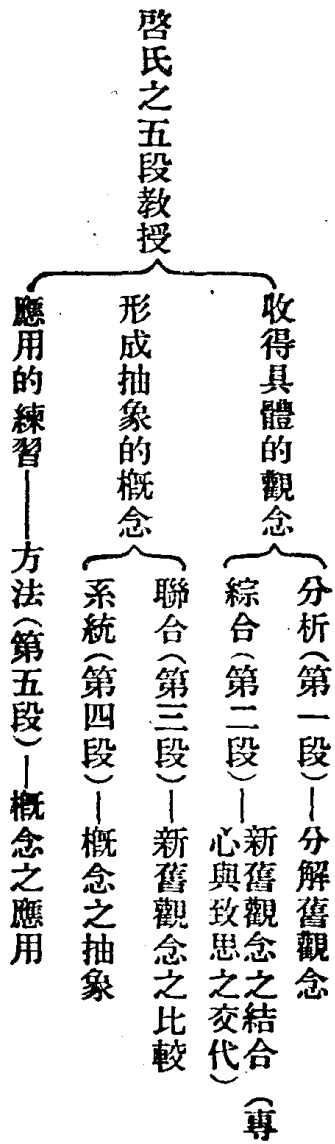 啓氏之五段教授
收得具體的觀念
分析(第一段)—分解舊觀念
綜合(第二段)—新舊觀念之結合(專
心與致思之交代)
形成抽象的概念
聯合(第三段)—新舊觀念之比較
系統(第四段)—概念之抽象
應用的練習——方法(第五段)—概念之應用